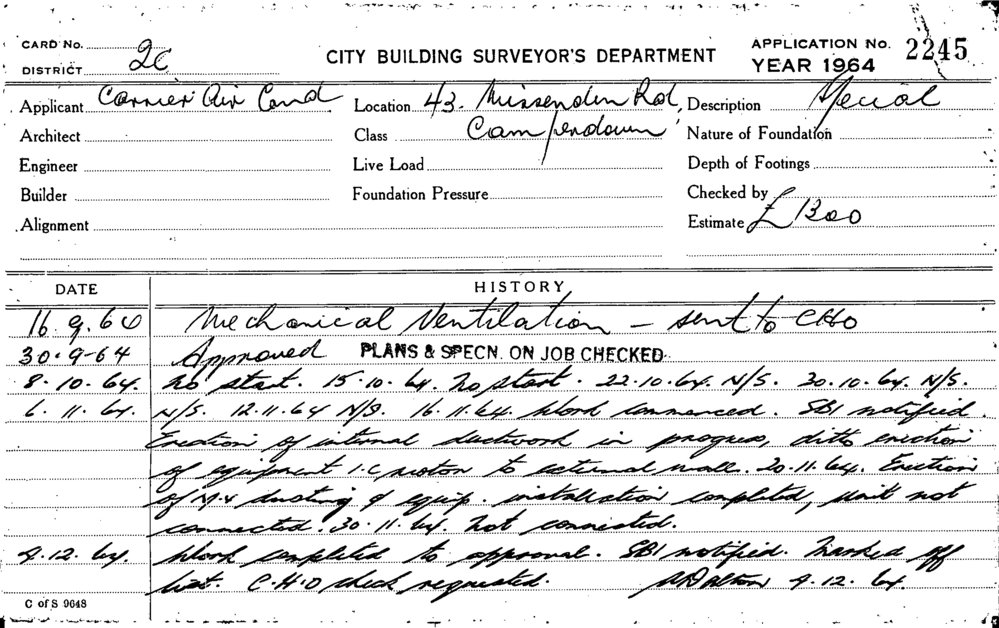 CARD No.
DISTRICT 2C
CITY BUILDING SURVEYOR'S DEPARTMENT
APPLICATION No. 2245
YEAR 1964
Applicant Carrier Air Cond
Location 43. Missenden Rd,
Description Special
Architect
Class Camperdown
Nature of Foundation
Engineer
Live Load
Depth of Footings
Builder
Foundation Pressure
Checked by
Alignment
Estimate £1300
DATE HISTORY
16.9.64 Mechanical Ventilation – sent to CHO
30.9-64 Approved PLANS & SPECN. ON JOB CHECKED
8.10.64. No start. 15.10.64. No start. 22.10.64. N/S. 30.10.64. N/S.
6.11.64. N/S. 12.11.64 N/S. 16.11.64. Work commenced. SBI notified.
Erection of internal ductwork in progress, ditto erection
of equipment I.C motor to external wall. 20.11.64. Erection
of M.V ducting & equip. installation completed, unit not
connected. 30.11.64. Not connected.
4.12.64. Work completed to approval. SBI notified. Marked off
list. C.H.O check requested. 4.12.64.
C of S 9648